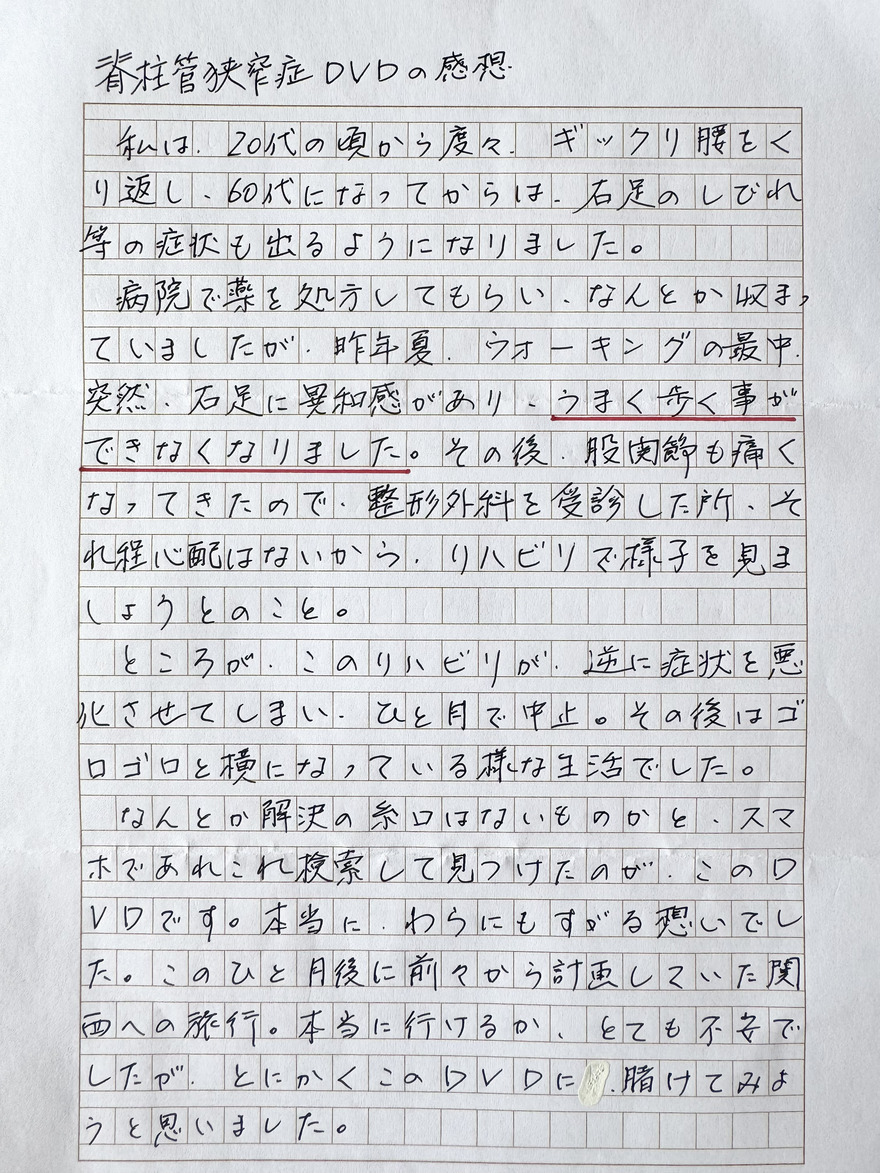 脊柱管狭窄症DVDの感想
私は、20代の頃から度々、ギックリ腰をく
り返し、60代になってからは、右足のしびれ
等の症状も出るようになりました。
病院で薬を処方してもらい、なんとか収まっ
ていましたが、昨年夏、ウオーキングの最中、
突然、右足に異和感があり、うまく歩く事が
できなくなりました。その後、股関節も痛く
なってきたので、整形外科を受診した所、そ
れ程心配はないから、リハビリで様子を見ま
しょうとのこと。
ところが、このリハビリが、逆に症状を悪
化させてしまい、ひと月で中止。その後はゴ
ロゴロと横になっている様な生活でした。
なんとか解決の糸口はないものかと、スマ
ホであれこれ検索して見つけたのが、このD
VDです。本当に、わらにもすがる想いでし
た。このひと月後に前々から計画していた関
西への旅行。本当に行けるか、とても不安で
したが、とにかくこのDVDに、賭けてみよ
うと思いました。